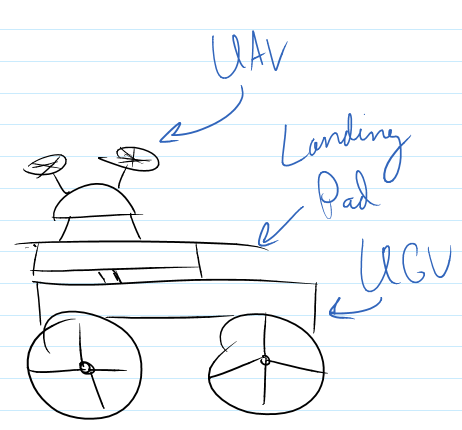 UAV
Landing
Pad
UGV